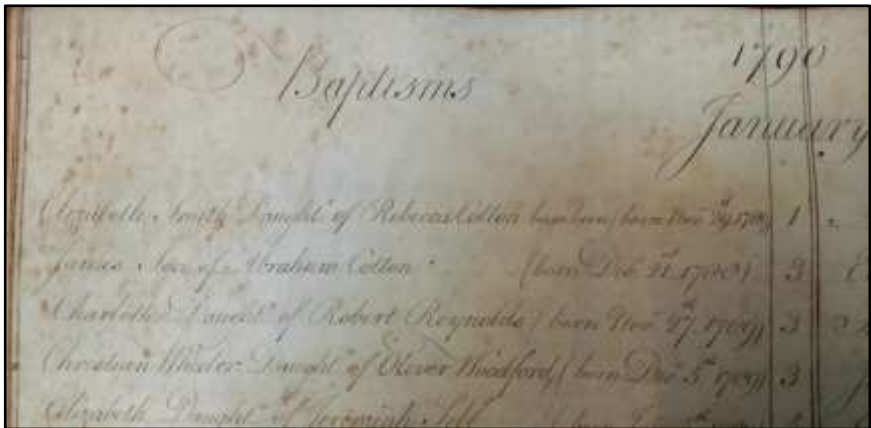 Baptisms 1790
January
Elizabeth Smith Daught.r of Rebecca Cotton (born Nov.r 29 1789) 1
James Son of Abraham Cotton (born Dec.r 21 3
Charlotte Daught.r of Robert Reynolds (born Nov.r 27 1789) 3
Christian Wheeler Daught.r of Oliver Woodford (born Dec.r 5th 1789) 3
Elizabeth Daught.r of Jeremiah